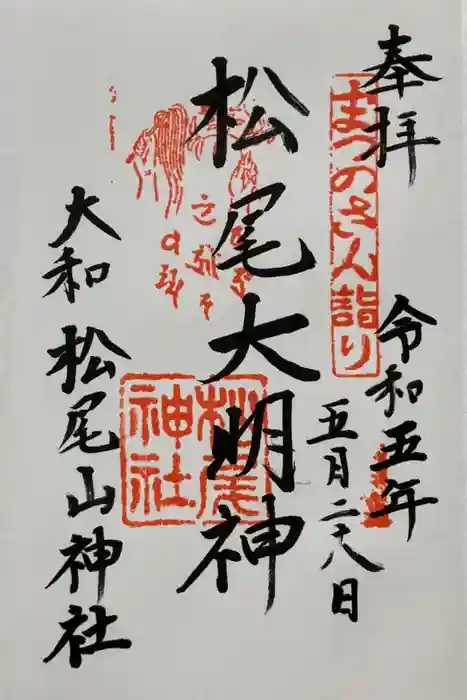 奉拝
まつのさん詣り
令和五年
五月二十八日
松尾大明神
松尾神社
大和 松尾山神社